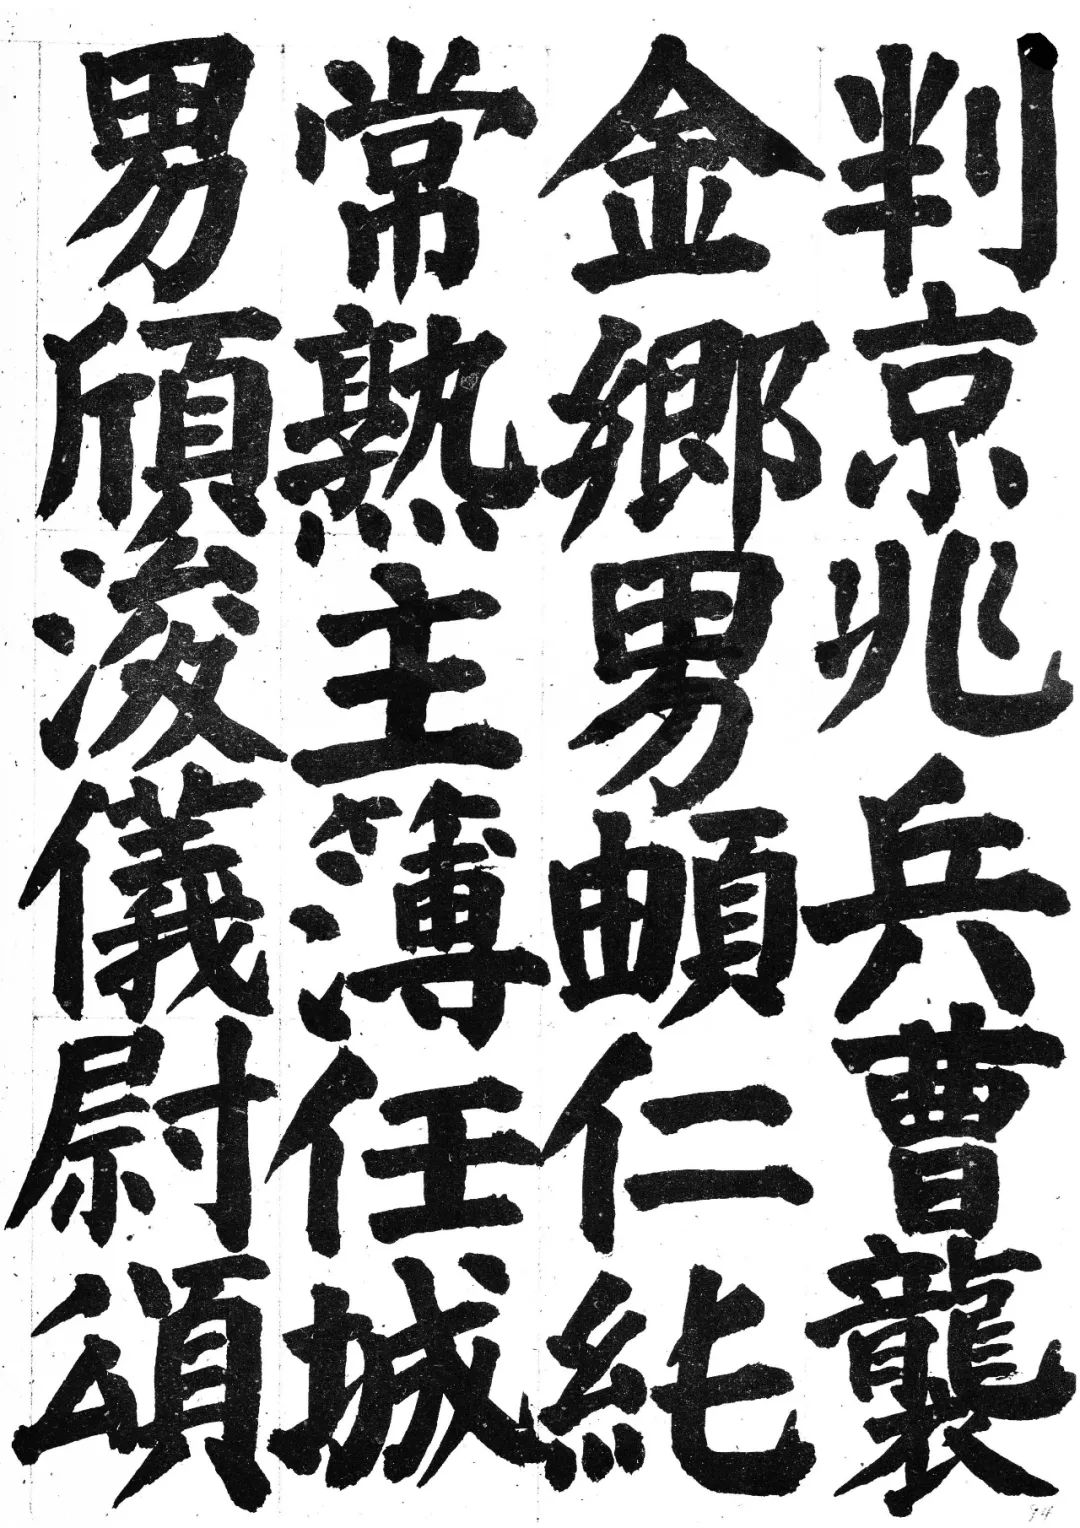 判京兆兵曹襲
金鄉男頔仁純
常熟主簿任城
男頎浚儀尉頌